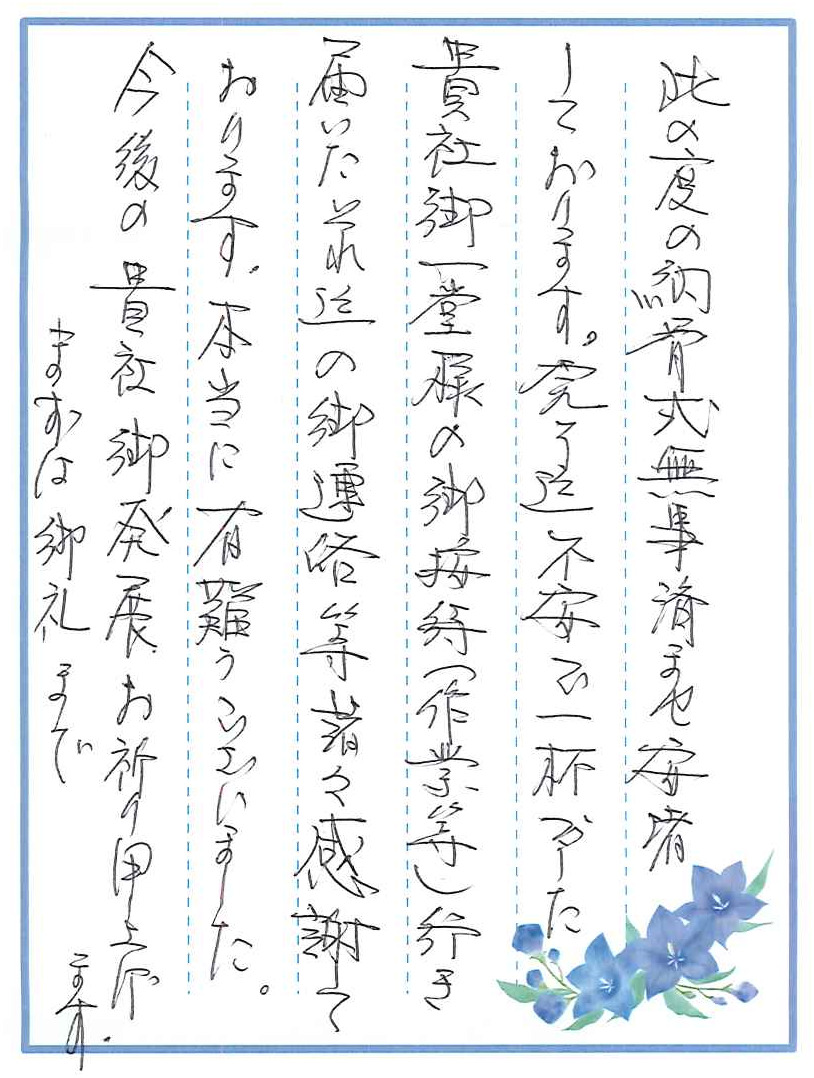 此の度の納骨式無事済ませ安堵
しております。完了迄不安で一杯でした
貴社御一堂様の御接待（作業等）行き
届いたそれ迄の御連絡等諸々感謝して
おります。本当に有難うございました。
今後の貴社御発展お祈り申し上げ
ます。
まずは御礼まで